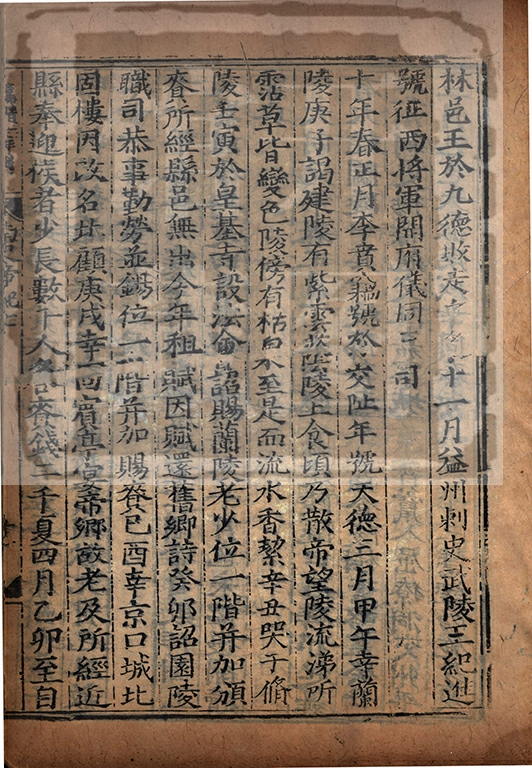 林邑王於九德敗走 十一月益州刺史武陵王紀進
號征西將軍開府儀同三司
十年春正月李賁竊號於交阯年號天德三月甲午幸蘭
陵庚子謁建陵有紫雲 陵上食頃乃散帝望陵流涕所
霑草皆變色陵傍有枯泉 至是而流水香絜辛丑哭于脩
陵壬寅於皇基寺設法會詔賜蘭陵老少位一階并加頒
賚所經縣邑無出今年租賦因賦還舊鄉詩癸卯詔園陵
職司恭事勤勞並錫位一階并加賜賚己酉幸京口城北
固樓因改名北顧庚戌幸回賓亭宴帝鄉故老及所經近
縣奉迎候者少長數千人各賚錢二千夏四月乙卯至自